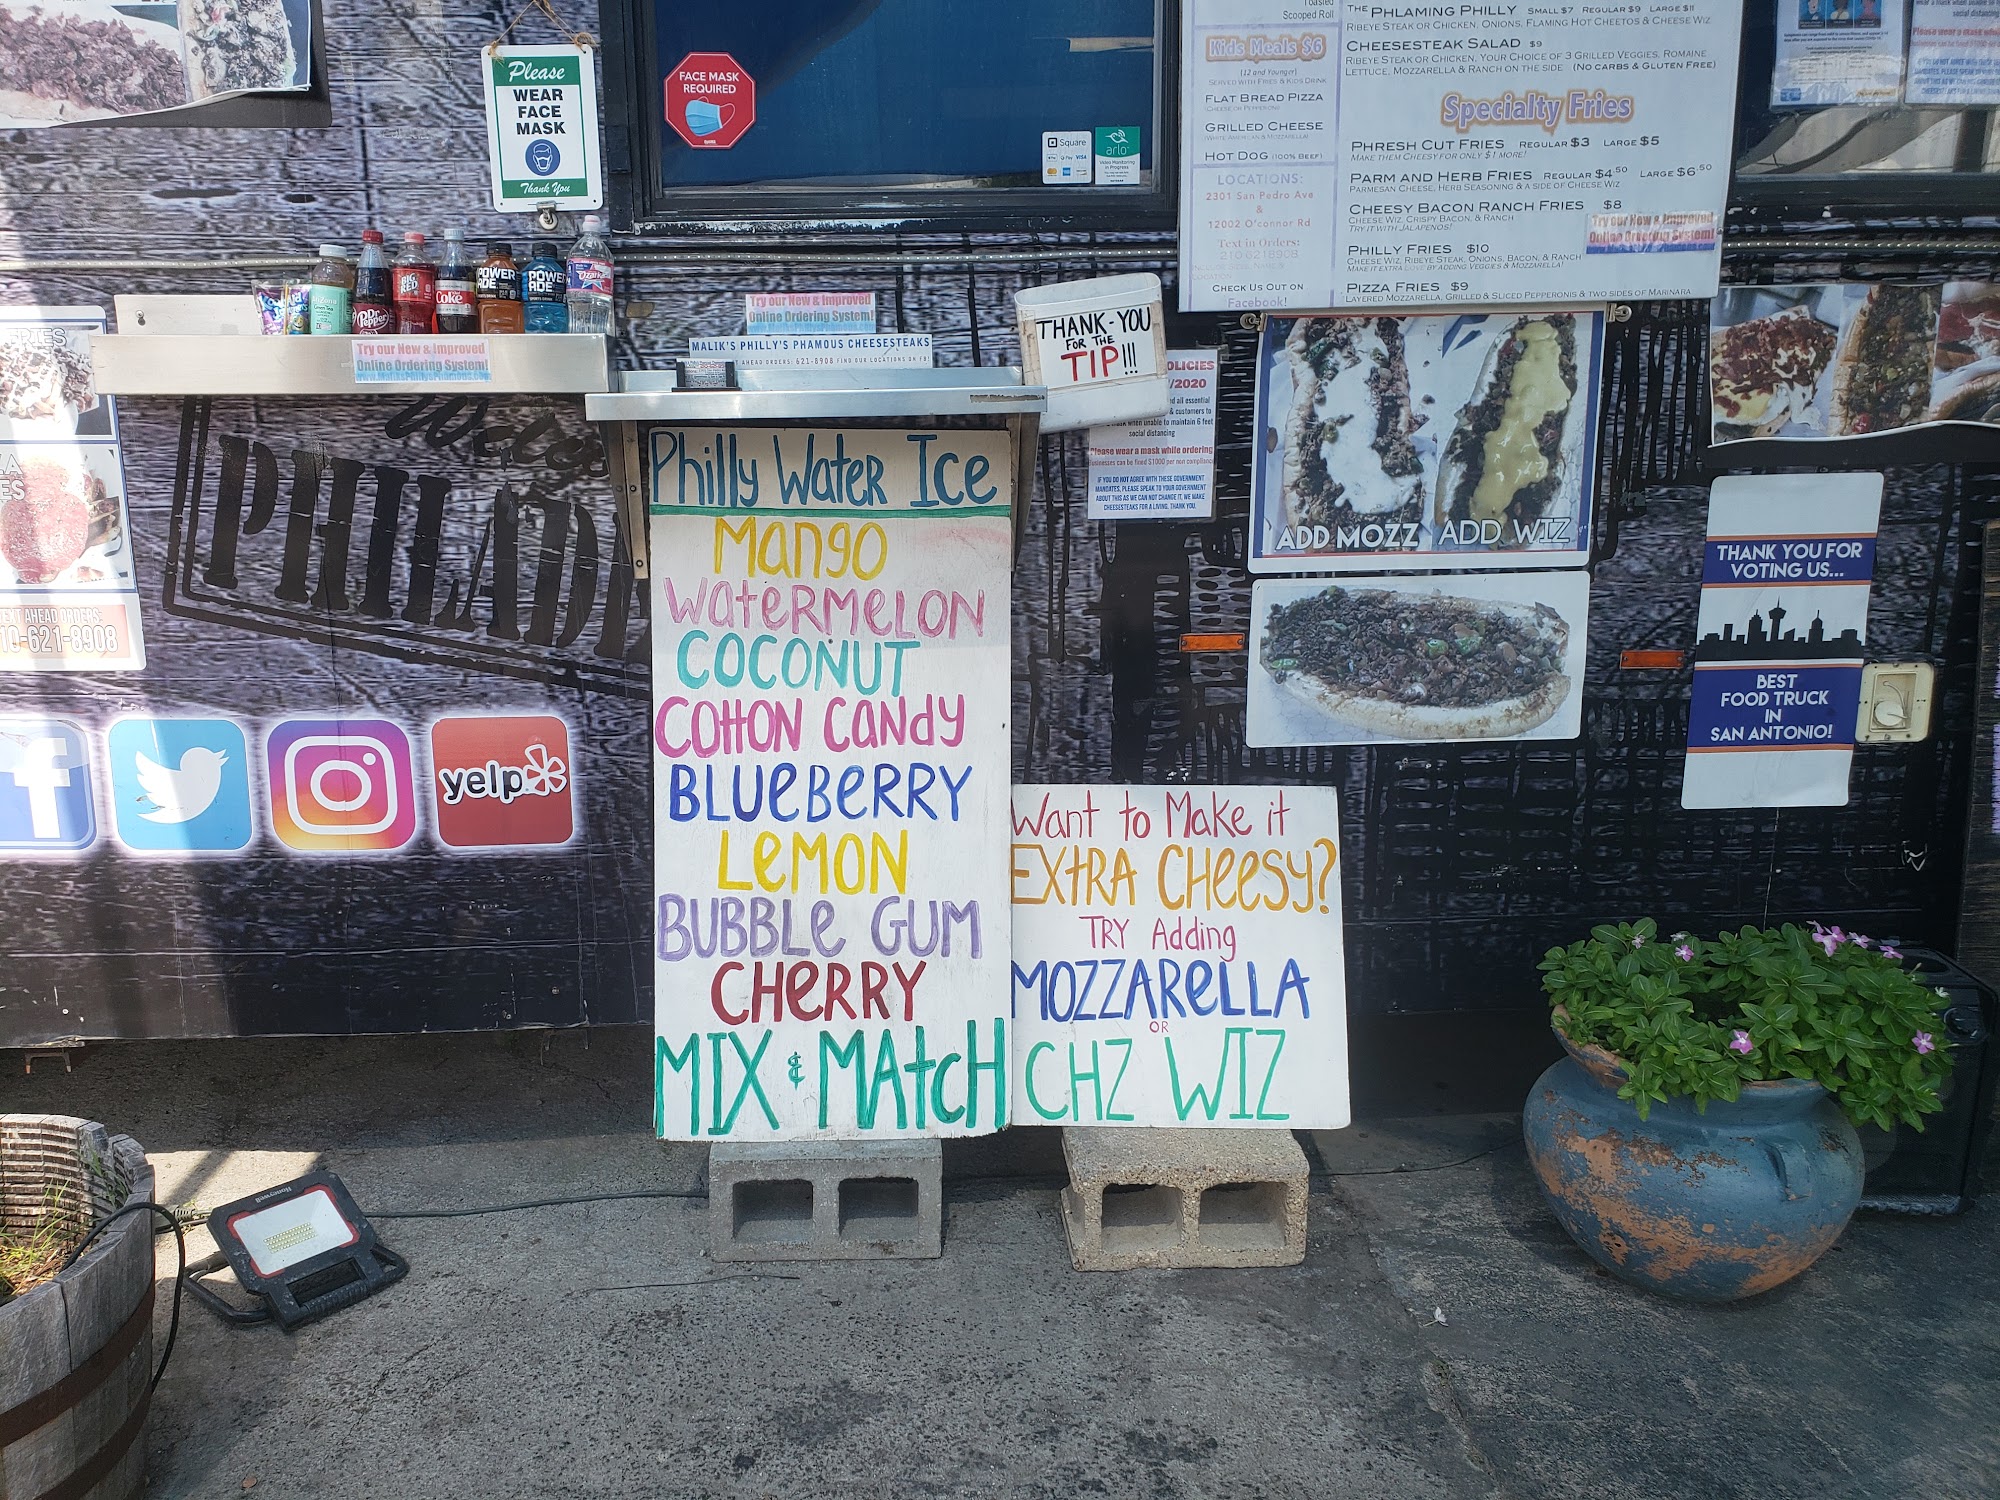 Please
WEAR
FACE
MASK
Thank You
FACE MASK
REQUIRED
Square
Pay
G Pay
VISA
arlo
Video Monitoring
in Progress
Toasted
Scooped Roll
Kids Meals $6
(12 and Younger)
SERVED WITH FRIES & KIDS DRINK
FLAT BREAD PIZZA
(CHEESE OR PEPPERONI)
GRILLED CHEESE
(WHITE AMERICAN & MOZZARELLA)
HOT DOG (100% BEEF)
LOCATIONS:
2301 San Pedro Ave
&
12002 O'connor Rd
Text in Orders:
210 621 8908
CHECK US OUT ON
Facebook!
THE PHLAMING PHILLY SMALL $7 REGULAR $9 LARGE $11
RIBEYE STEAK OR CHICKEN, ONIONS, FLAMING HOT CHEETOS & CHEESE WIZ
CHEESESTEAK SALAD $9
RIBEYE STEAK OR CHICKEN, YOUR CHOICE OF 3 GRILLED VEGGIES, ROMAINE
LETTUCE, MOZZARELLA & RANCH ON THE SIDE (NO CARBS & GLUTEN FREE)
Specialty Fries
PHRESH CUT FRIES REGULAR $3 LARGE $5
MAKE THEM CHEESY FOR ONLY $1 MORE!
PARM AND HERB FRIES REGULAR $4.50 LARGE $6.50
PARMESAN CHEESE, HERB SEASONING & A SIDE OF CHEESE WIZ
CHEESY BACON RANCH FRIES $8
CHEESE WIZ, CRISPY BACON, & RANCH
TRY IT WITH JALAPENOS!
PHILLY FRIES $10
CHEESE WIZ, RIBEYE STEAK, ONIONS, BACON, & RANCH
MAKE IT EXTRA LOVE BY ADDING VEGGIES & MOZZARELLA!
PIZZA FRIES $9
LAYERED MOZZARELLA, GRILLED & SLICED PEPPERONIS & TWO SIDES OF MARINARA
Try our New & Improved
Online Ordering System!
Dr Pepper
BIG RED
Coke
POWERADE
POWERADE
Ozarka
Try our New & Improved
Online Ordering System!
www.MaliksPhillysPhamous.com
Try our New & Improved
Online Ordering System!
MALIK'S PHILLY'S PHAMOUS CHEESESTEAKS
AHEAD ORDERS: 621-8908 FIND OUR LOCATIONS ON FB!
THANK-YOU
FOR THE
TIP!!!
OLICIES
/2020
nd all essential
& customers to
mask when unable to maintain 6 feet
social distancing
Please wear a mask while ordering
Businesses can be fined $1000 per non compliance
IF YOU DO NOT AGREE WITH THESE GOVERNMENT
MANDATES, PLEASE SPEAK TO YOUR GOVERNMENT
ABOUT THIS AS WE CAN NOT CHANGE IT, WE MAKE
CHEESESTEAKS FOR A LIVING. THANK YOU.
ADD MOZZ ADD WIZ
PHILADE
RIES
ZA
ES
TEXT AHEAD ORDERS:
10-621-8908
yelp
Philly Water Ice
Mango
WATERMELON
COCONUT
COTTON CANdY
BLUEBERRY
LEMON
BUBBLE GUM
CHERRY
MIX & MATCH
Want to Make it
EXTRA CHeeSY?
TRY Adding
MOZZARELLA
OR
CHZ WIZ
THANK YOU FOR
VOTING US...
BEST
FOOD TRUCK
IN
SAN ANTONIO!
Honeywell